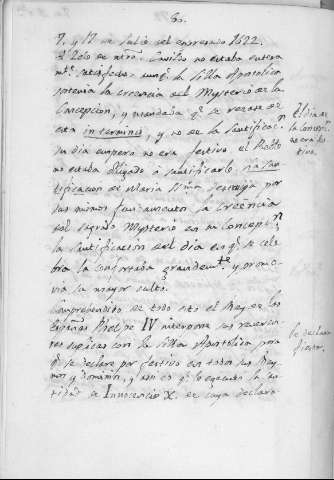 60.
7. y 17 de Julio del expresado 1622.
El Zelo de ntro. Cavildo no estaba entera
mte. satisfecho aunqe. la Silla Apostolica
sostenia la creencia del Mysterio de la
Concepcion, y mandaba qe. se rezase de
esta in terminis, y no de la Santificacn.
su dia empero no era festivo el Pueblo
no estaba obligado a santificarlo. La San-
tificacion de Maria Sma. destruya por
sus mismos fundamentos la creencia
del sagrado Mysterio en su Concepn.
la Santificacion del dia en qe. se cele
bra la confortaba grandemte. y promo-
via su mayor culto.
Comprehendido de todo esto el Rey de las
Españas Phelpe IV interpone sus reveren-
tes suplicas con la Silla Apostolica para
qe. se declare por festivo en todos sus Rey-
nos y dominios, y asi es qe. lo executó la San-
tidad de Innocencio X. en cuya declara
El dia de
la Concepn.
no era fes
tivo.
Se declara
fiesta.